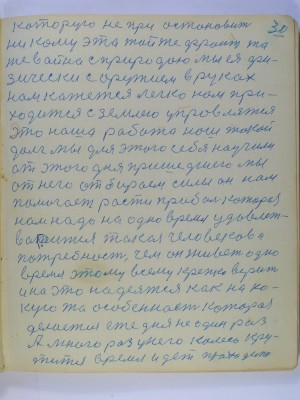 30
которую не при остановит
ни кому эта той же фронт та
же война с природою мы ея фи-
зически с оружием в руках
нам кажется легко нам при-
ходится с землею управлятся
это наша работа наш такой
долг мы для этого себя научили
от этого дня пришедшего мы
от него отбираем силы он нам
помогает расти прибал которая
нам надо на одно время удовлет-
варится такая человеково
потребност, чем он живет одно
время этому всему крепко верит
и на это надеятся как на ка-
кую та особенност которая
делается еже дня не один раз
А много раз у него колесо кру-
тится время идет проходит